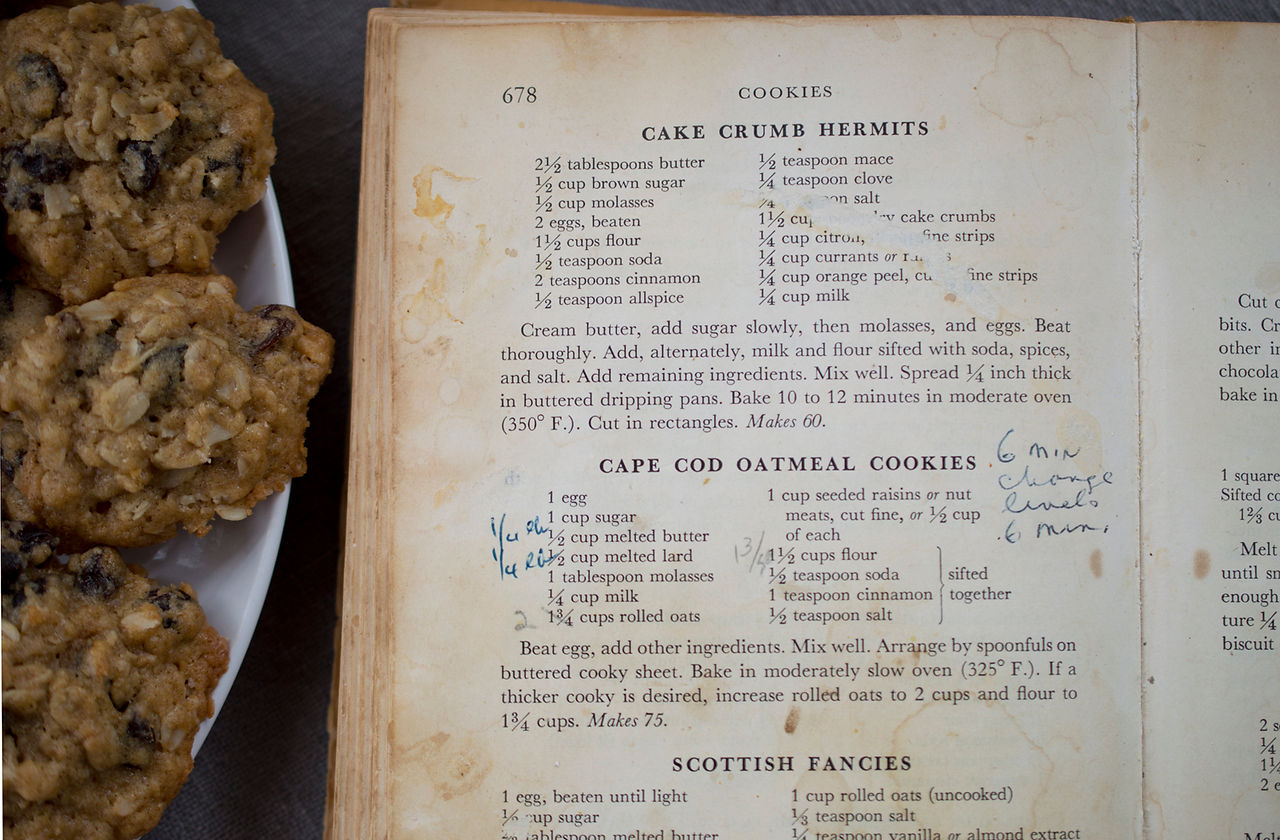 678
COOKIES
CAKE CRUMB HERMITS
2½ tablespoons butter
½ cup brown sugar
½ cup molasses
2 eggs, beaten
1½ cups flour
½ teaspoon soda
2 teaspoons cinnamon
½ teaspoon allspice
½ teaspoon mace
¼ teaspoon clove
salt
1½ cake crumbs
¼ cup citron, fine strips
¼ cup currants or
¼ cup orange peel, fine strips
¼ cup milk
Cream butter, add sugar slowly, then molasses, and eggs. Beat
thoroughly. Add, alternately, milk and flour sifted with soda, spices,
and salt. Add remaining ingredients. Mix well. Spread ¼ inch thick
in buttered dripping pans. Bake 10 to 12 minutes in moderate oven
(350° F.). Cut in rectangles. Makes 60.
CAPE COD OATMEAL COOKIES
6 min
change
levels
6 min.
1 egg
1 cup sugar
1/4
½ cup melted butter
1/4
½ cup melted lard
1 tablespoon molasses
¼ cup milk
2
1¾ cups rolled oats
1 cup seeded raisins or nut
meats, cut fine, or ½ cup
of each
1 3/4
1½ cups flour
½ teaspoon soda
1 teaspoon cinnamon
½ teaspoon salt
sifted
together
Beat egg, add other ingredients. Mix well. Arrange by spoonfuls on
buttered cooky sheet. Bake in moderately slow oven (325° F.). If a
thicker cooky is desired, increase rolled oats to 2 cups and flour to
1¾ cups. Makes 75.
SCOTTISH FANCIES
1 egg, beaten until light
cup sugar
tablespoon melted butter
1 cup rolled oats (uncooked)
⅓ teaspoon salt
¼ teaspoon vanilla or almond extract
Cut
bits.
other
chocola
bake in
1 square
Sifted
1⅔
Melt
until
enough
ture ¼
biscuit
2
¼
2